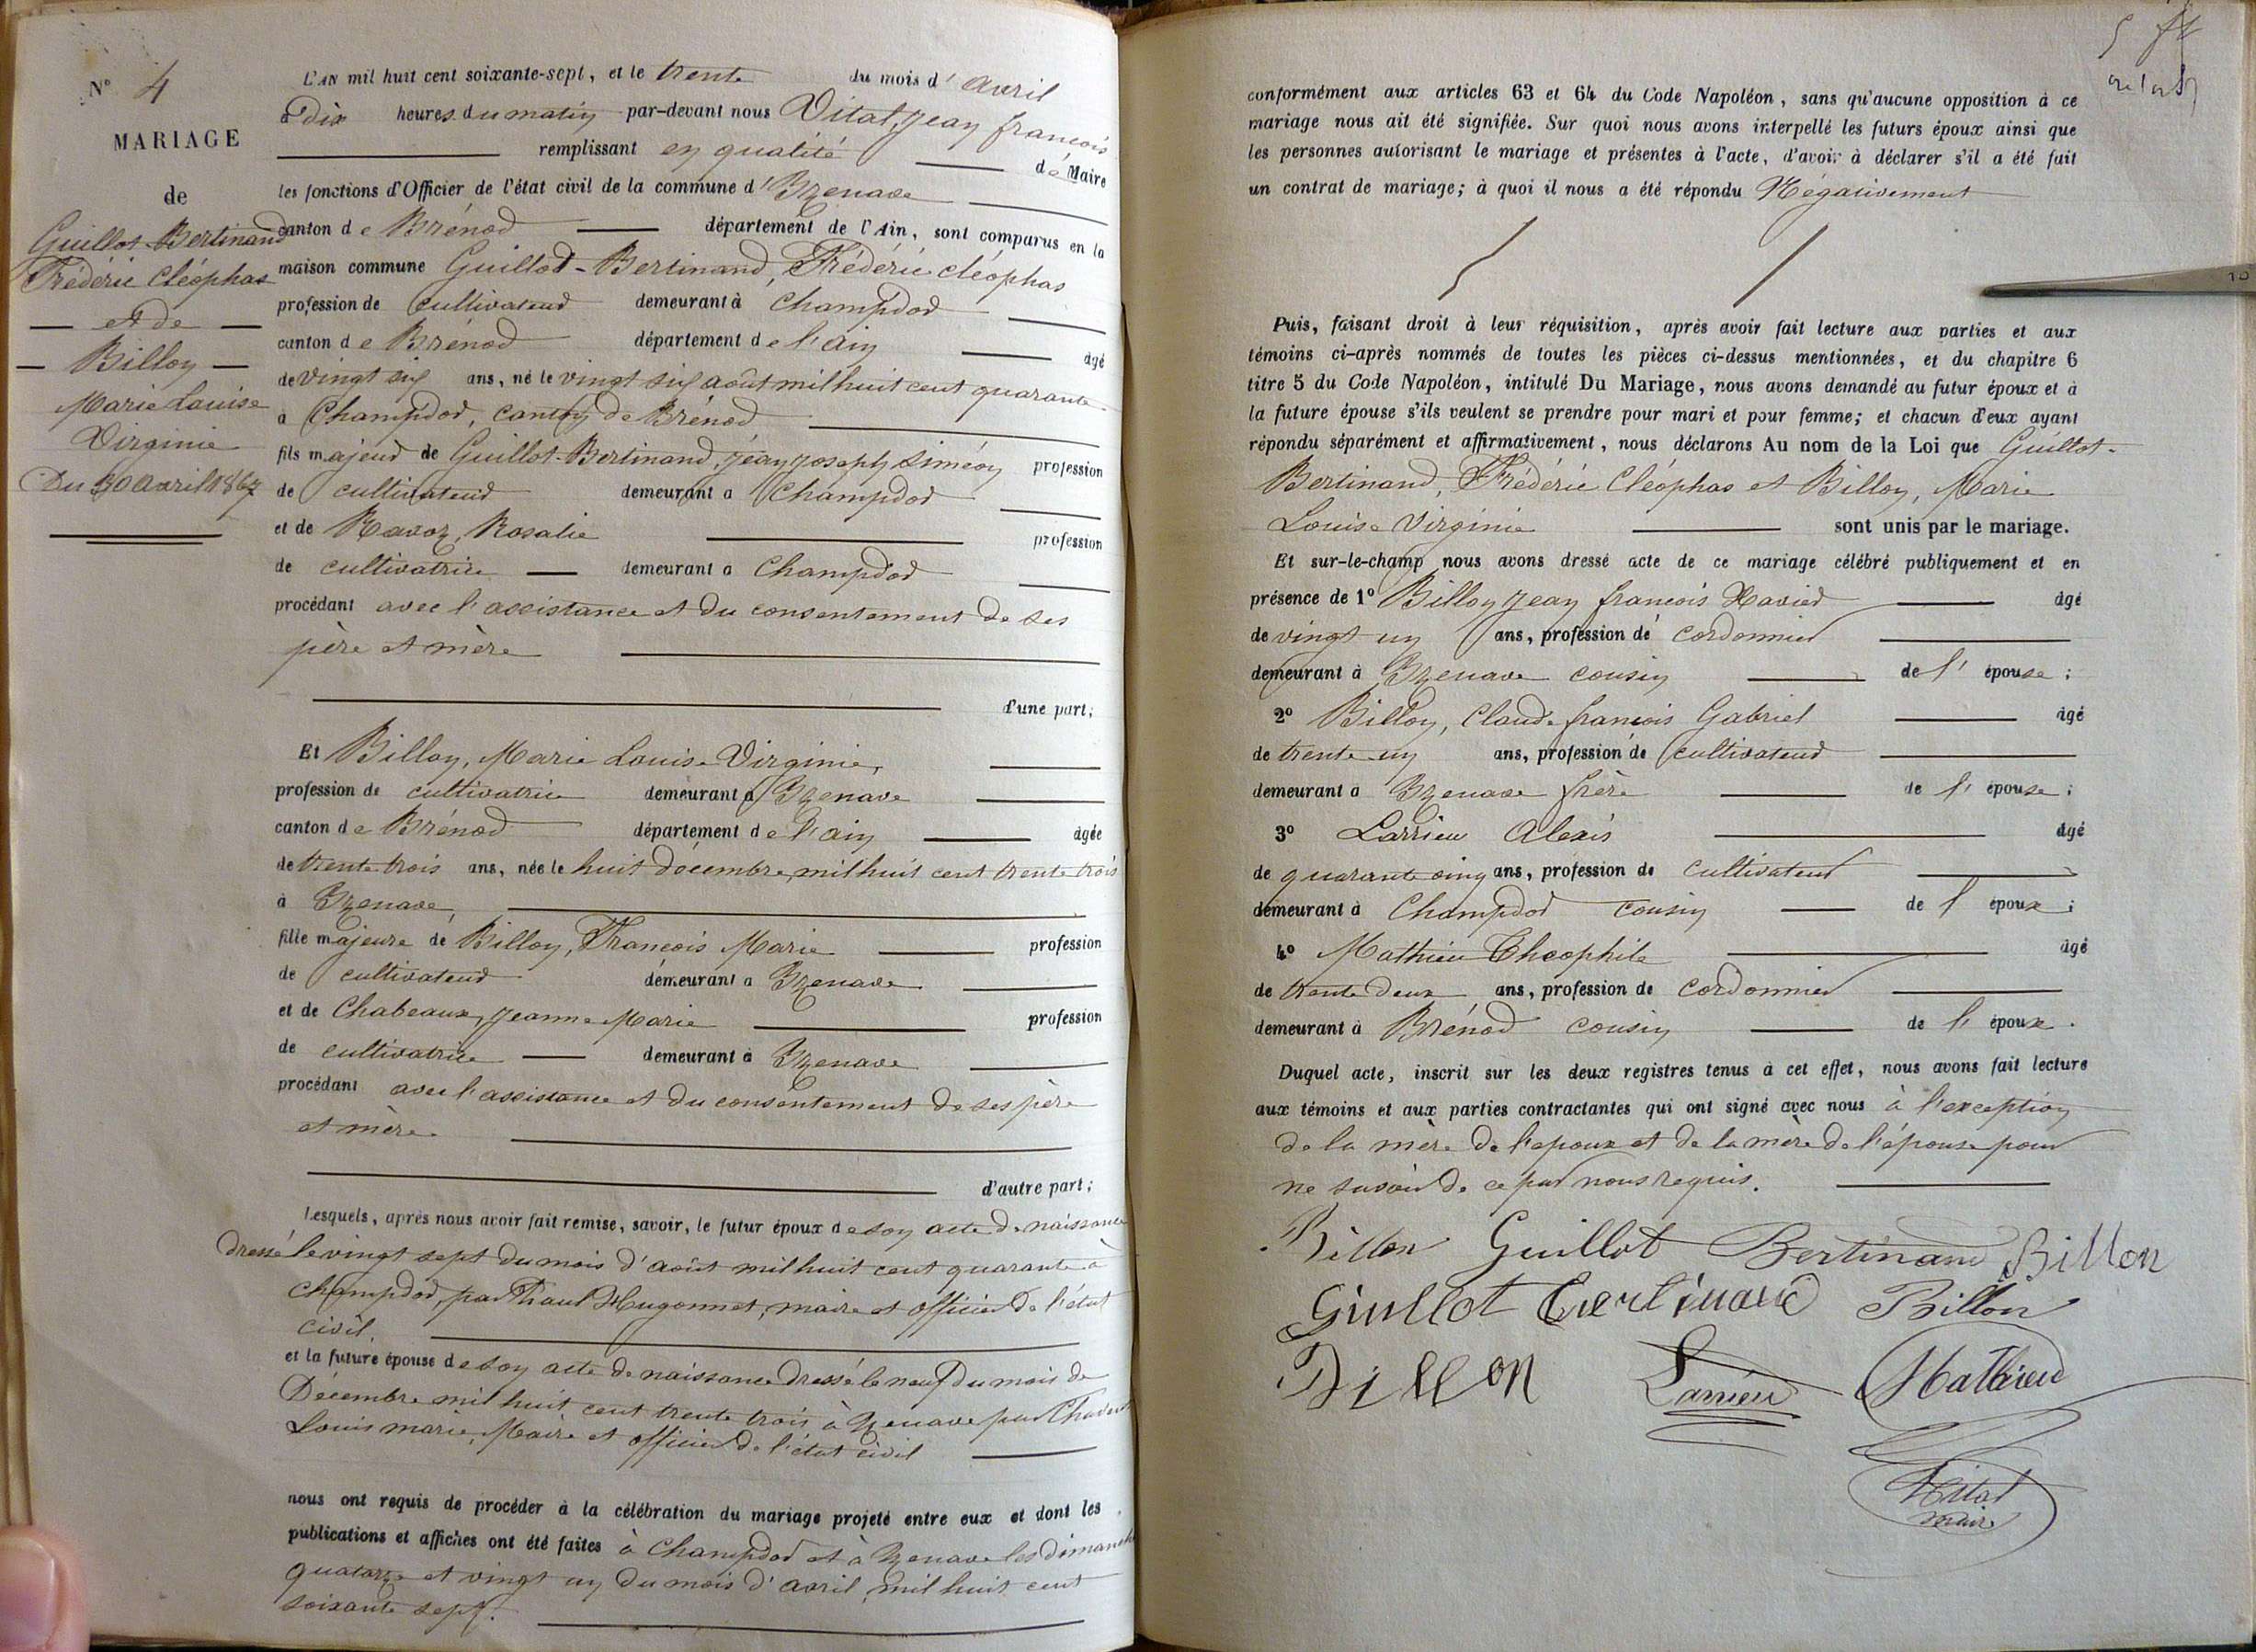 N° 4
MARIAGE
de
Guillot-Bertinand
Frédéric Cléophas
et de
Billon
Marie Louise
Virginie
Du 30 avril 1867
L'AN mil huit cent soixante-sept, et le trente du mois d'avril
à dix heures du matin par-devant nous Vital, Jean françois
remplissant en qualité de Maire
les fonctions d'Officier de l'état civil de la commune d'Izenave
canton de Brénod département de l'Ain, sont comparus en la
maison commune Guillot-Bertinand, Frédéric cléophas
profession de cultivateur demeurant à Champdor
canton de Brénod département de l'ain âgé
de vingt six ans, né le vingt six août mil huit cent quarante
à Champdor, canton de Brénod
fils majeur de Guillot-Bertinand, jean joseph Siméon profession
de cultivateur demeurant à Champdor
et de Ravoz, Rosalie profession
de cultivatrice demeurant à Champdor
procédant avec l'assistance et du consentement de ses
père et mère
d'une part;
Et Billon, Marie Louise Virginie,
profession de cultivatrice demeurant à Izenave
canton de Brénod département de l'ain âgée
de trente trois ans, née le huit décembre mil huit cent trente trois
à Izenave,
fille majeure de Billon, François Marie profession
de cultivateur demeurant à Izenave
et de Chabeaux, jeanne Marie profession
de cultivatrice demeurant à Izenave
procédant avec l'assistance et du consentement de ses père
et mère.
d'autre part;
Lesquels, après nous avoir fait remise, savoir, le futur époux de son acte de naissance
dressé le vingt sept du mois d'août mil huit cent quarante à
Champdor, par Hugonnet, maire et officier de l'état
civil.
et la future épouse de son acte de naissance dressé le neuf du mois de
Décembre mil huit cent trente trois à Izenave par
Louis marie, Maire et officier de l'état civil
nous ont requis de procéder à la célébration du mariage projeté entre eux et dont les
publications et affiches ont été faites à Champdor et à Izenave les dimanche
quatorze et vingt un du mois d'avril mil huit cent
soixante sept.
conformément aux articles 63 et 64 du Code Napoléon, sans qu'aucune opposition à ce
mariage nous ait été signifiée. Sur quoi nous avons interpellé les futurs époux ainsi que
les personnes autorisant le mariage et présentes à l'acte, d'avoir à déclarer s'il a été fait
un contrat de mariage; à quoi il nous a été répondu Négativement
Puis, faisant droit à leur réquisition, après avoir fait lecture aux parties et aux
témoins ci-après nommés de toutes les pièces ci-dessus mentionnées, et du chapitre 6
titre 5 du Code Napoléon, intitulé Du Mariage, nous avons demandé au futur époux et à
la future épouse s'ils veulent se prendre pour mari et pour femme; et chacun d'eux ayant
répondu séparément et affirmativement, nous déclarons Au nom de la Loi que Guillot-
Bertinand, Frédéric Cléophas et Billon, Marie
Louise Virginie sont unis par le mariage.
Et sur-le-champ nous avons dressé acte de ce mariage célébré publiquement et en
présence de 1° Billon jean françois Xavier âgé
de vingt un ans, profession de cordonnier
demeurant à Izenave cousin de l'épouse;
2° Billon, Claude françois Gabriel âgé
de trente un ans, profession de cultivateur
demeurant à Izenave frère de l'épouse;
3° Larrieu Alexis âgé
de quarante cinq ans, profession de cultivateur
demeurant à Champdor cousin de l époux;
4° Mathieu Théophile âgé
de trente deux ans, profession de cordonnier
demeurant à Brénod cousin de l'époux.
Duquel acte, inscrit sur les deux registres tenus à cet effet, nous avons fait lecture
aux témoins et aux parties contractantes qui ont signé avec nous à l'exception
de la mère de l'époux et de la mère de l'épouse pour
ne savoir de ce par nous requis.
Billon Guillot Bertinand Billon
Guillot bertinand Billon
Billon Larrieu Mathieu
Vital
maire